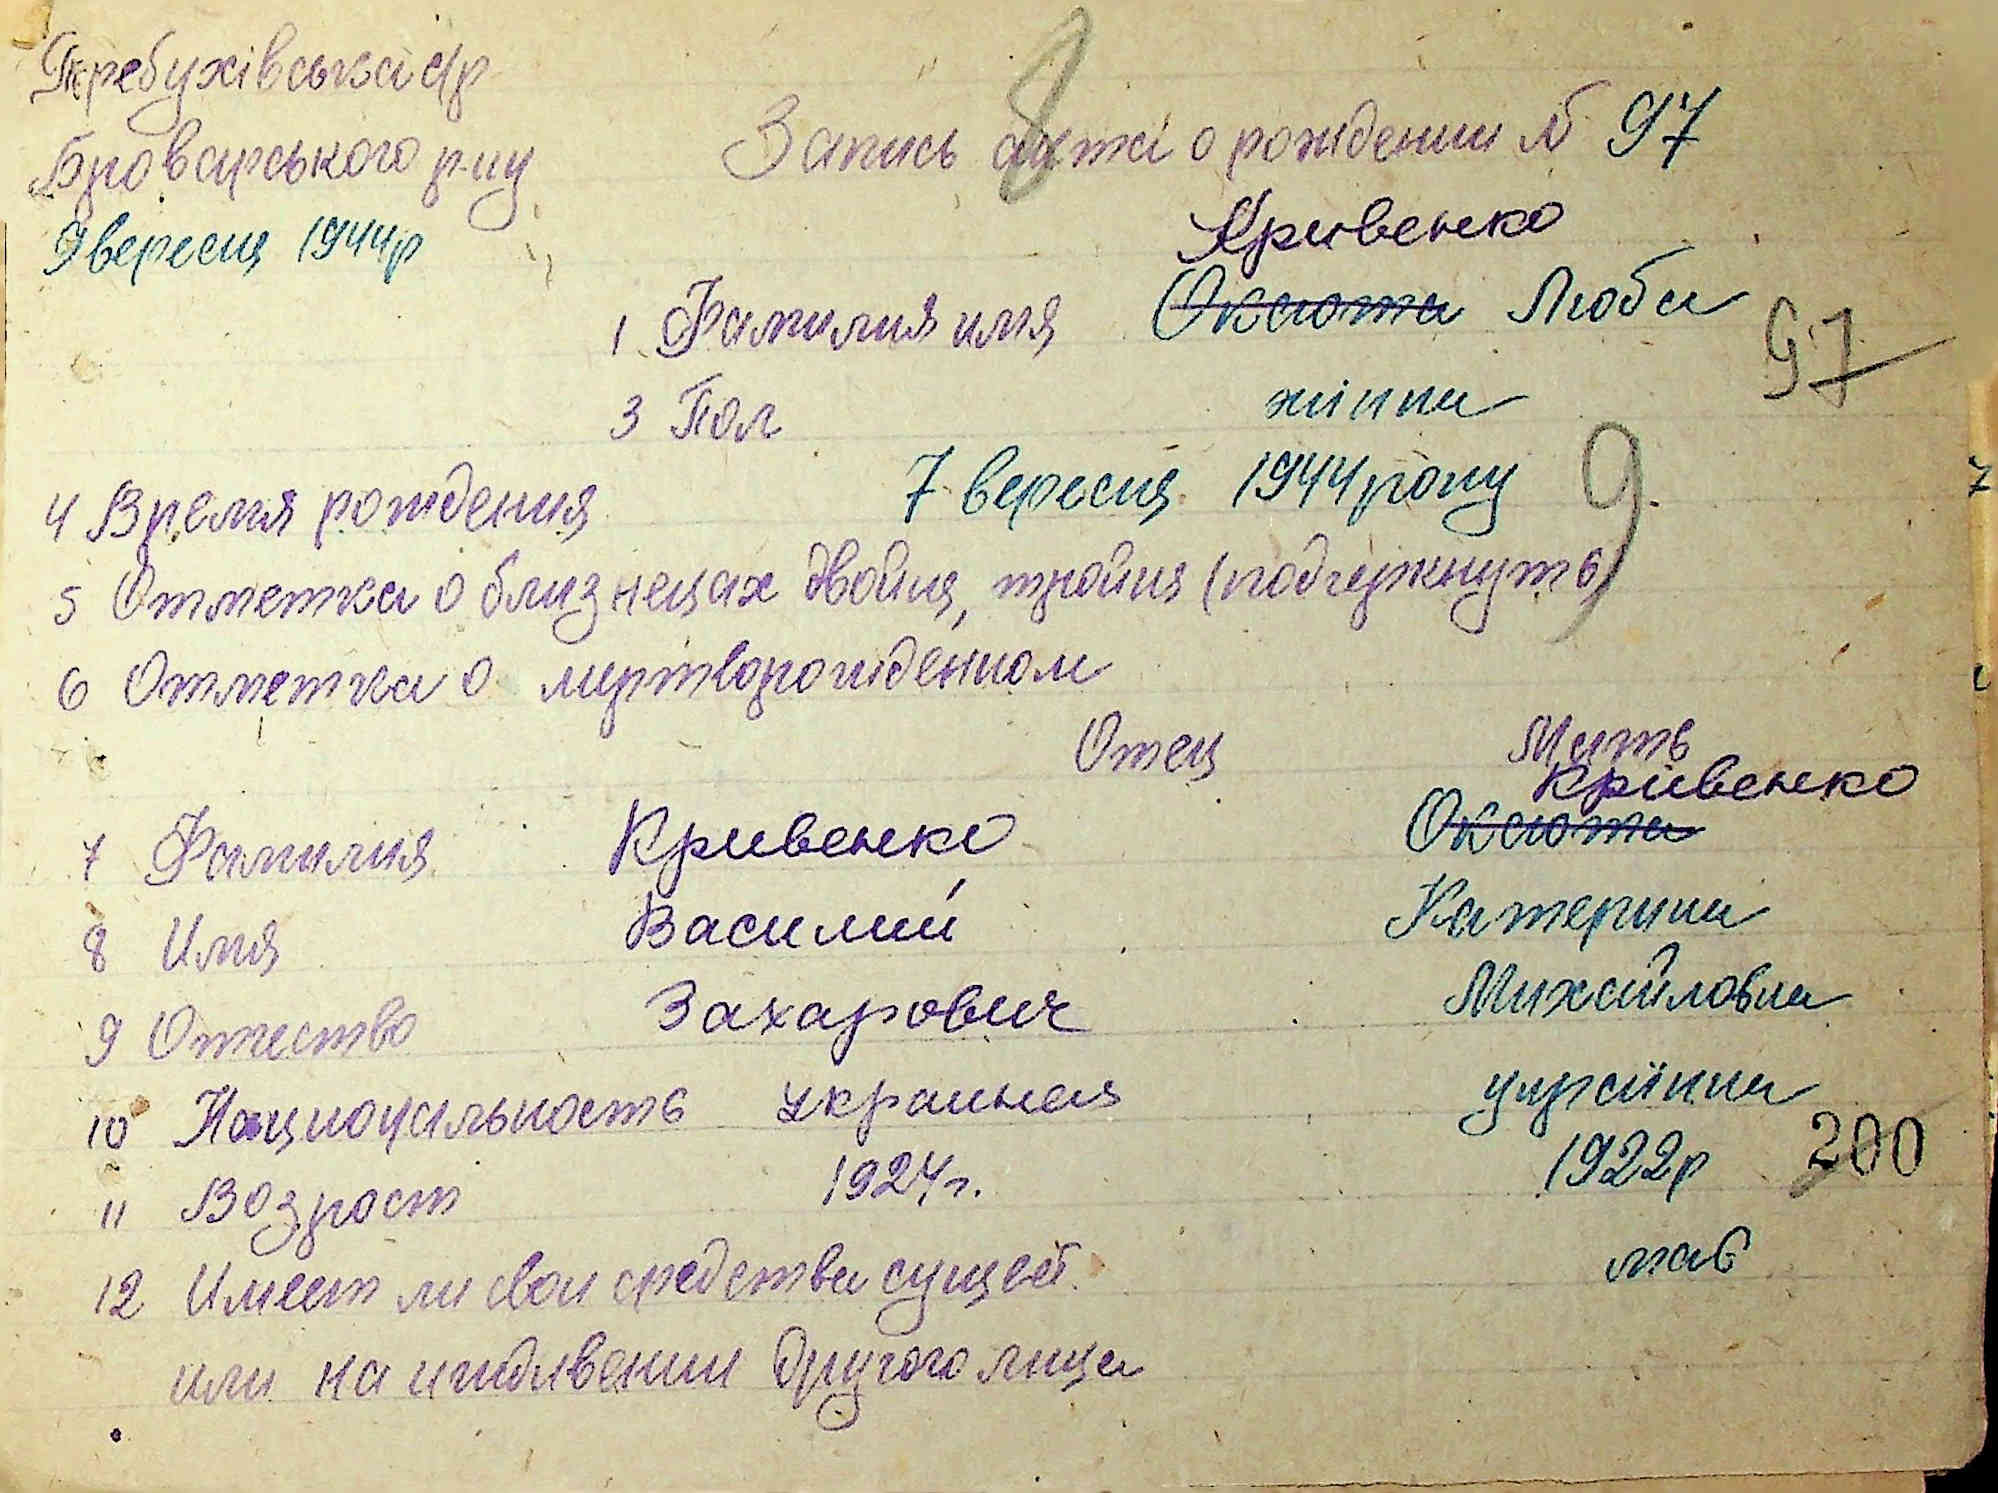 Требухівська с/р
Броварського р-ну
9 вересня 1944р
8
Запись акта о рождении № 97
Кривенко
1 Фамилия имя Оксюта Люба
97
3 Пол жінка
4 Время рождения 7 вересня 1944 року
9
5 Отметка о близнецах двойня, тройня (подчеркнуть)
6 Отметка о мертворожденном
Отец Мать
Кривенко
7 Фамилия Кривенко Оксюта
8 Имя Василий Катерина
9 Отчество Захарович Михайловна
10 Национальность украиная українка
11 Возраст 1924г. 1922р
200
12 Имеет ли свои средства сущест. має
или на иждивении другого лица